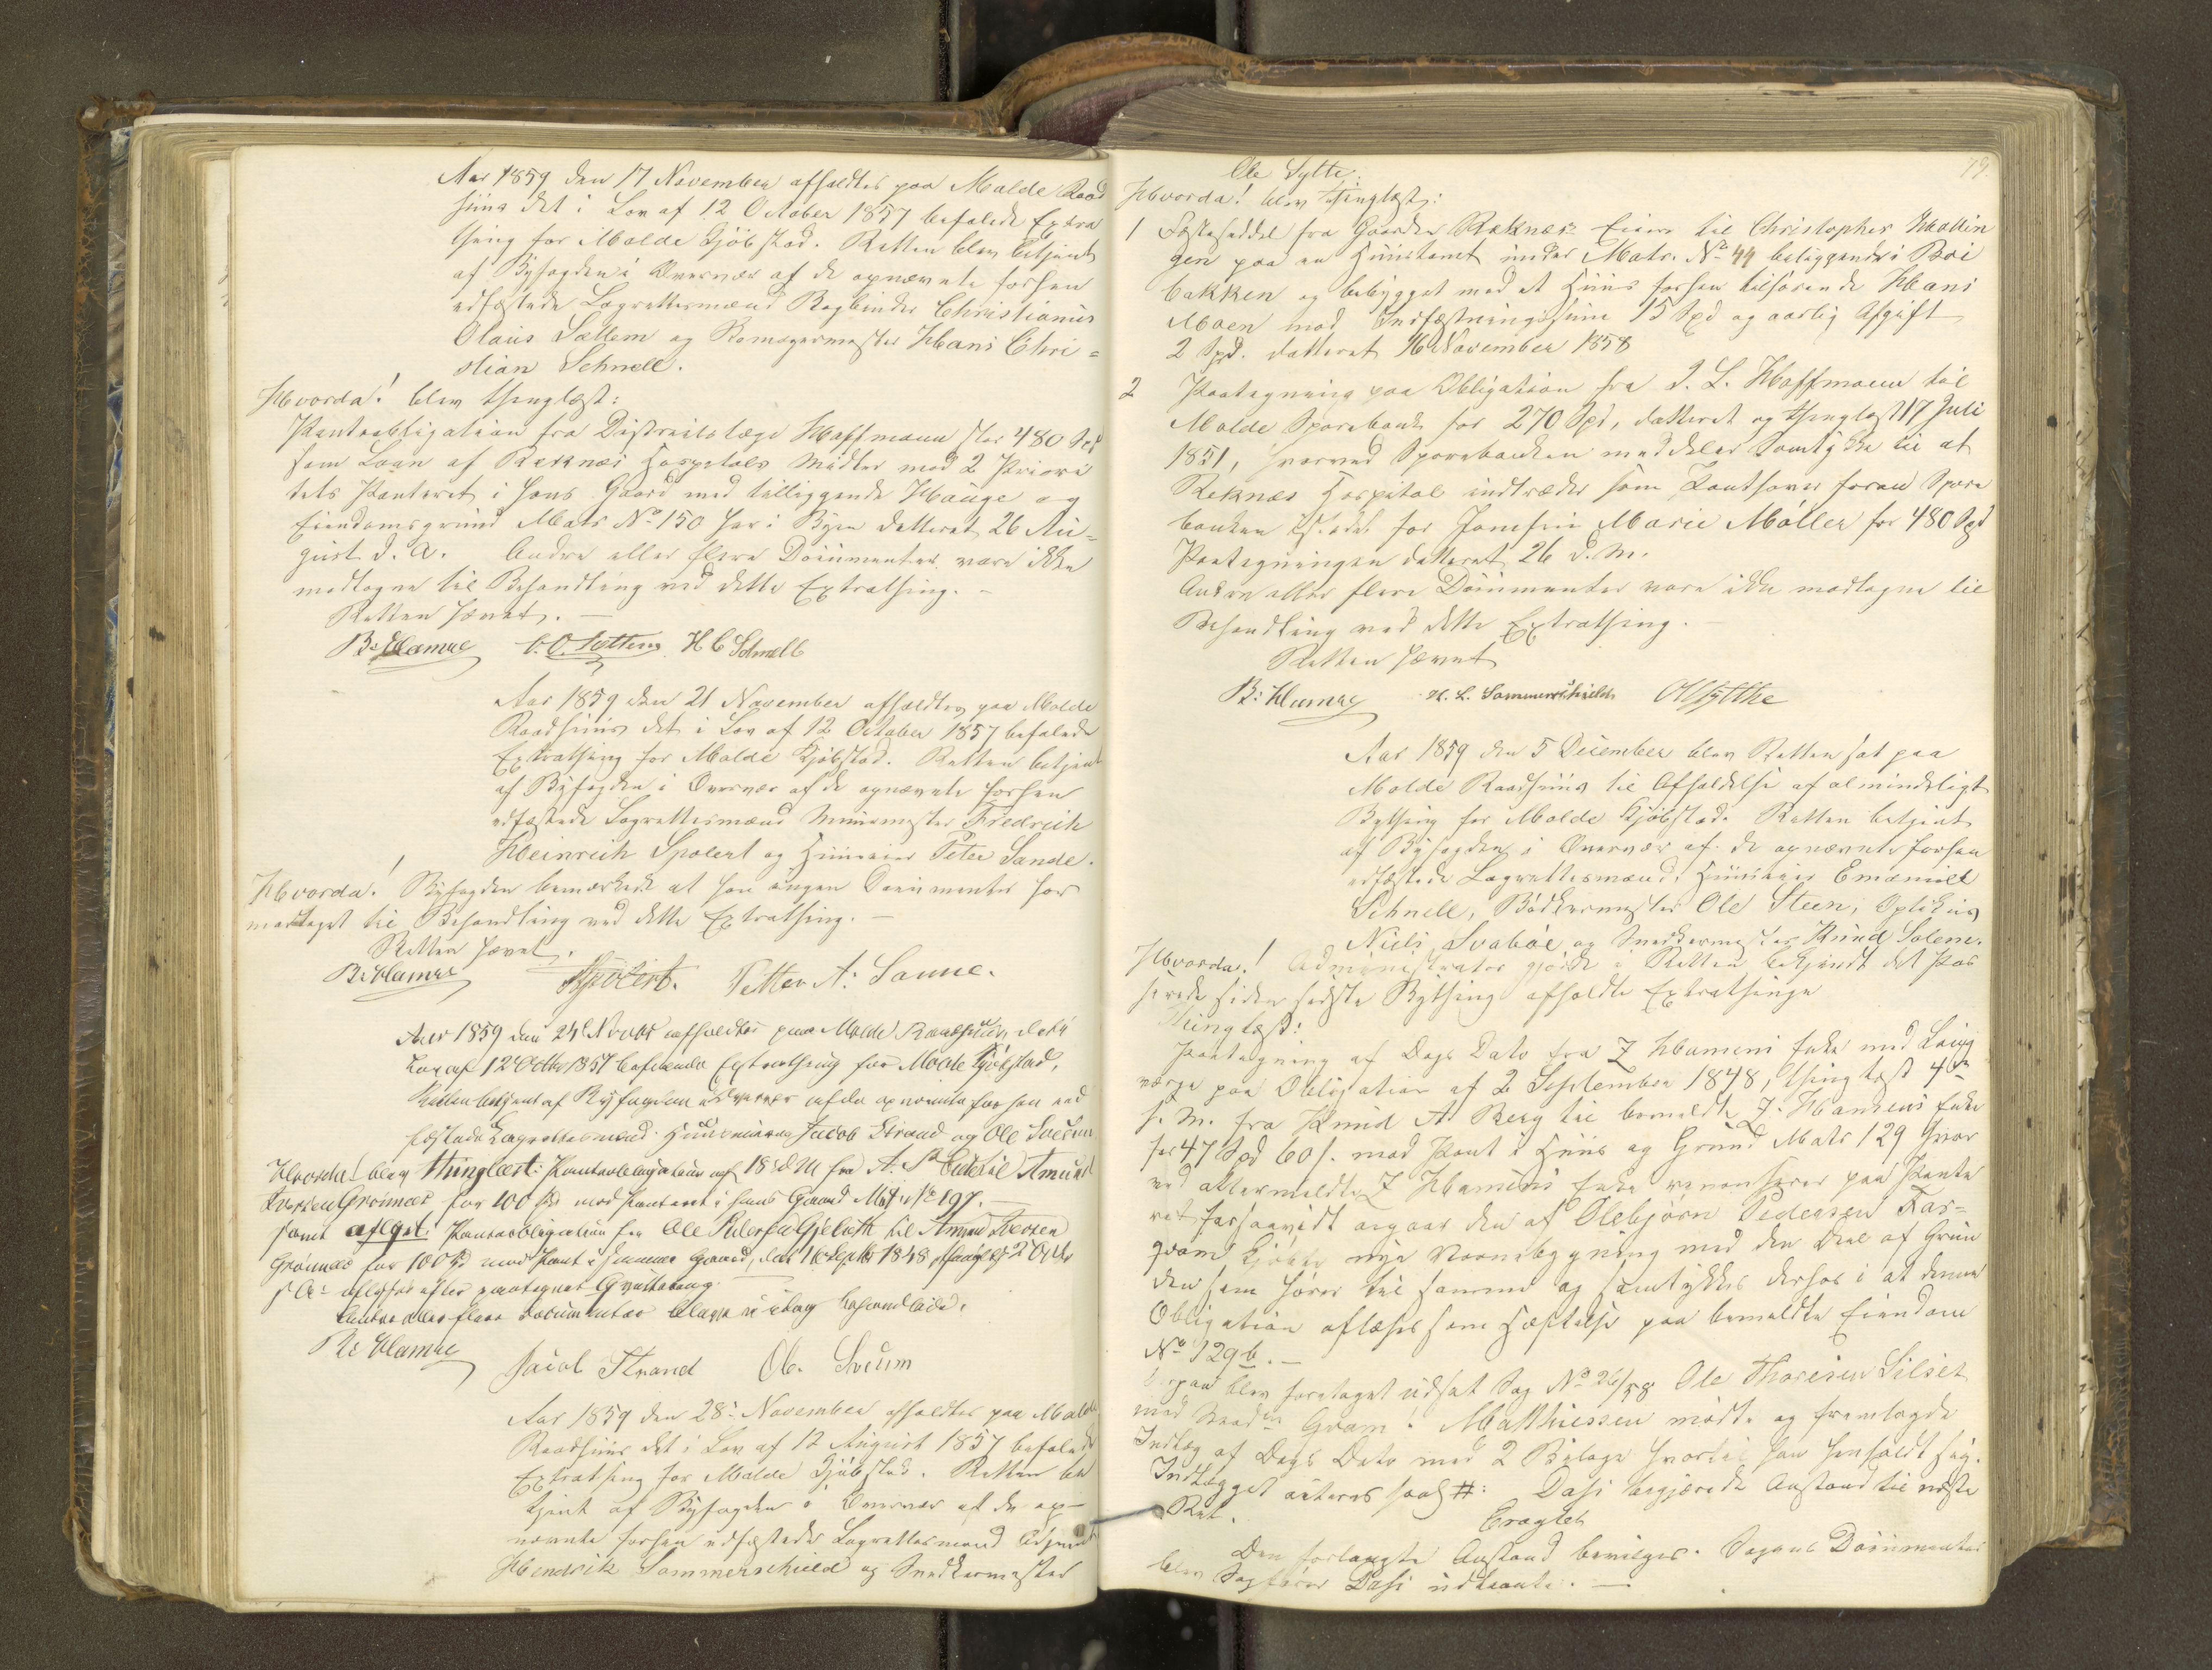 Aar 1859 den 17 November afholdtes paa Molde Raad
huus det i Lov af 12 October 1857 befalede Extra
thing for Molde Kjøbstad. Retten blev betjent
af Byfogden i Overvær af de opnævnte forhen
edfæstede Laugrettesmænd Bogbinder Christianus
Olaus Sættem og Remagermester Hans Chri=
stian Schnell.
Hvorda! blev thinglæst:
Panteobligation fra Districtslæge Hoffmann stor 480 Spd
som Laan af Reknæs Hospitals Midler mod 2 Priori
tets Panteret i hans Gaard med tilliggende Hauge og
Eiendomsgrund Matr No 150 her i Byen datteret 26 Au=
gust d. A. Andre eller flere Documenter vare ikke
modtagne til Behandling ved dette Extrathing. -
Retten hævet. -
B: Klamer C. O. Settem H C Schnell
Aar 1859 den 21 November afholdtes paa Molde
Raadhuus det i Lov af 12 October 1857 befalede
Extrathing for Molde Kjøbstad. Retten betjent
af Byfogden i Overvær af de opnævnte forhen
edfæstede Laugrettesmænd Muurmester Fredrich
Heinrich Spolert og Huuseier Peter Sande.
Hvorda! Byfogden bemærkede at han ingen Documenter har
modtaget til Behandling ved dette Extrathing. -
Retten hævet.
B: Klamer Spolert. Petter A: Sanne.
Aar 1859 den 24de Novbr afholdtes paa Molde Raadhuus det i
Lov af 12 Octbr 1857 befalende Extrathing for Molde Kjøbstad,
Retten betjent af Byfogden i Overvær af de opnævnte forhen ed
fæstede Laugrettesmænd: Huuseierne Jacob Strand og Ole Sveum
Hvorda! blev thinglæst: Panteobligation af 18 d M fra A. Amund
Iversen Grønnæs for 100 Spd mod Panteret i hans Gaard Matr No 197. -
samt aflyst: Panteobligation fra Ole Pedersen Gjeldseth til Amund Iversen
Grønnæs for 100 Spd mod Pant i samme Gaard, dat 1 Septbr 1848
aflyses efter paategnet Qvittering.
Andre eller flere Documenter bleve ei idag behandlede.
B: Klamer Jacob Strand Ol. Sveum
Aar 1859 den 28: November afholdtes paa Molde
Raadhuus det i Lov af 12 August 1857 befalede
Extrathing for Molde Kjøbstad. Retten be
tjent af Byfogden i Overvær af de op-
nævnte forhen edfæstede Laugrettesmænd
Hendrik Sommerschield og Snedkermester
79
Ole Sylte.
Hvorda! blev thinglæst:
1 Fæsteseddel fra Gaarden Reknæs Eiere til Christopher Hallin
gen paa en Huustomt under Matr. No 44 beliggende i Roi
bakken og bebygget med et Huus forhen tilhørende Hans
Moen mod Indfæstningssum 15 Spd og aarlig Afgift
2 Spd. datteret 16 November 1858
2 Paategning paa Obligation fra J. L. Hoffmann til
Molde Sparebank for 270 Spd, datteret og thinglæst 17 Juli
1851, hvorved Sparebanken meddeler Samtykke til at
Reknæs Hospital indtræder som Panthaver foran Spare
banken istedet for Jomfru Marie Møller for 480 Spd
Paategningen datteret 26 d. M.
Andre eller flere Documenter vare ikke modtagne til
Behandling ved dette Extrathing. -
Retten hævet
B: Klamer H. L. Sommerschield O Sylthe
Aar 1859 den 5 December blev Retten sat paa
Molde Raadhuus til Afholdelse af almindeligt
Bything for Molde Kjøbstad. Retten betjent
af Byfogden i Overvær af de opnævnte forhen
edfæstede Laugrettesmænd: Huuseier Emanuel
Schnell, Bødkermester Ole Steen,
Niels Svabøe og Snedkermester Knud Solem.
Hvorda! Administrator gjorde i Retten bekjendt det Pas
serede siden sidste Bything afholdte Extrathinge
Thinglæst:
Paategning af Dags Dato fra J Hansens Enke med Laug
værge paa Obligation af 2 September 1848, thinglæst 4de
s. M. fra Knud A Berg til bemeldte J. Hansens Enke
for 47 Spd 60 s. med Pant i Huus og Grund Matr 129 hvor
ved J Hansens Enke renoncerer paa Pante
ret forsaavidt angaar den af Olebjørn Pedersen Far=
qvam kjøbte nye Vaanebygning med den Deel af Grun
den som hører til samme og samtykkes derhos i at denne
Obligation aflæses som Hæftelse paa bemeldte Eiendom
No 129 b. -
Derpaa blev foretaget udsat Sag No 26/58 Ole Thoresen Silset
mod Gram. Matthiessen mødte og fremlagde
Indlæg af Dags Dato med 2 Bilage hvortil han henholdt sig.
Indlægget saal #: Dahl begjærede Anstand til næste
Ret.
Eragtet
Den forlangte Anstand bevilges. Sagens Documenter
blev Sagfører Dahl udlaante. -